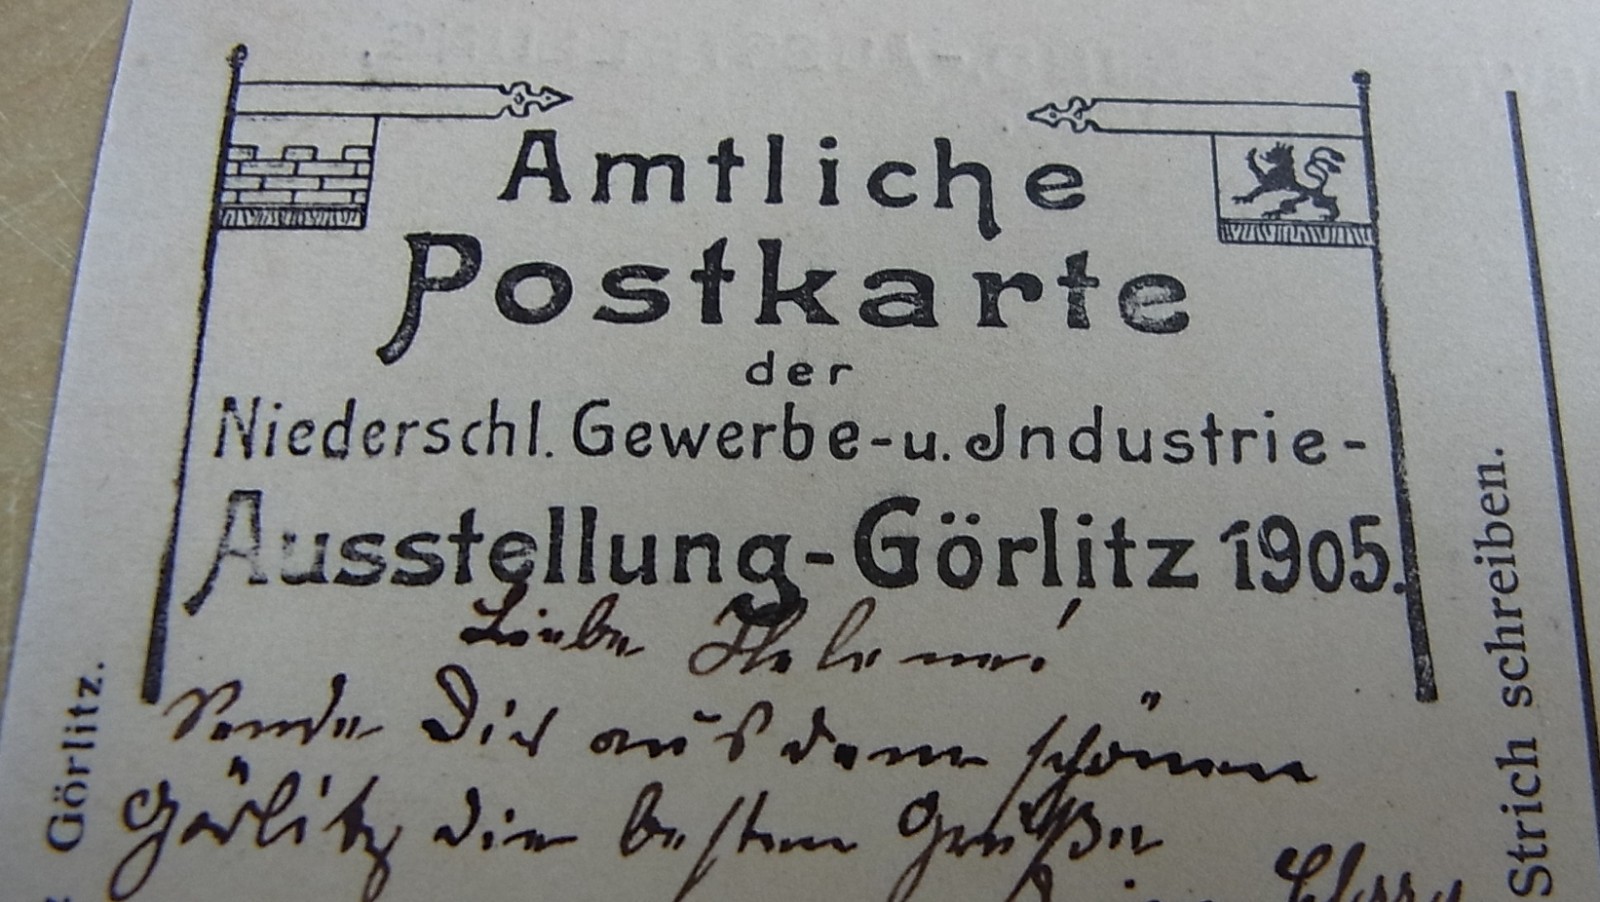 Amtliche
Postkarte
der
Niederschl. Gewerbe- u. Industrie-
Ausstellung-Görlitz 1905.
Liebe Helene!
Sende Dir aus dem schönen
Görlitz die besten Grüße
Görlitz.
Strich schreiben.